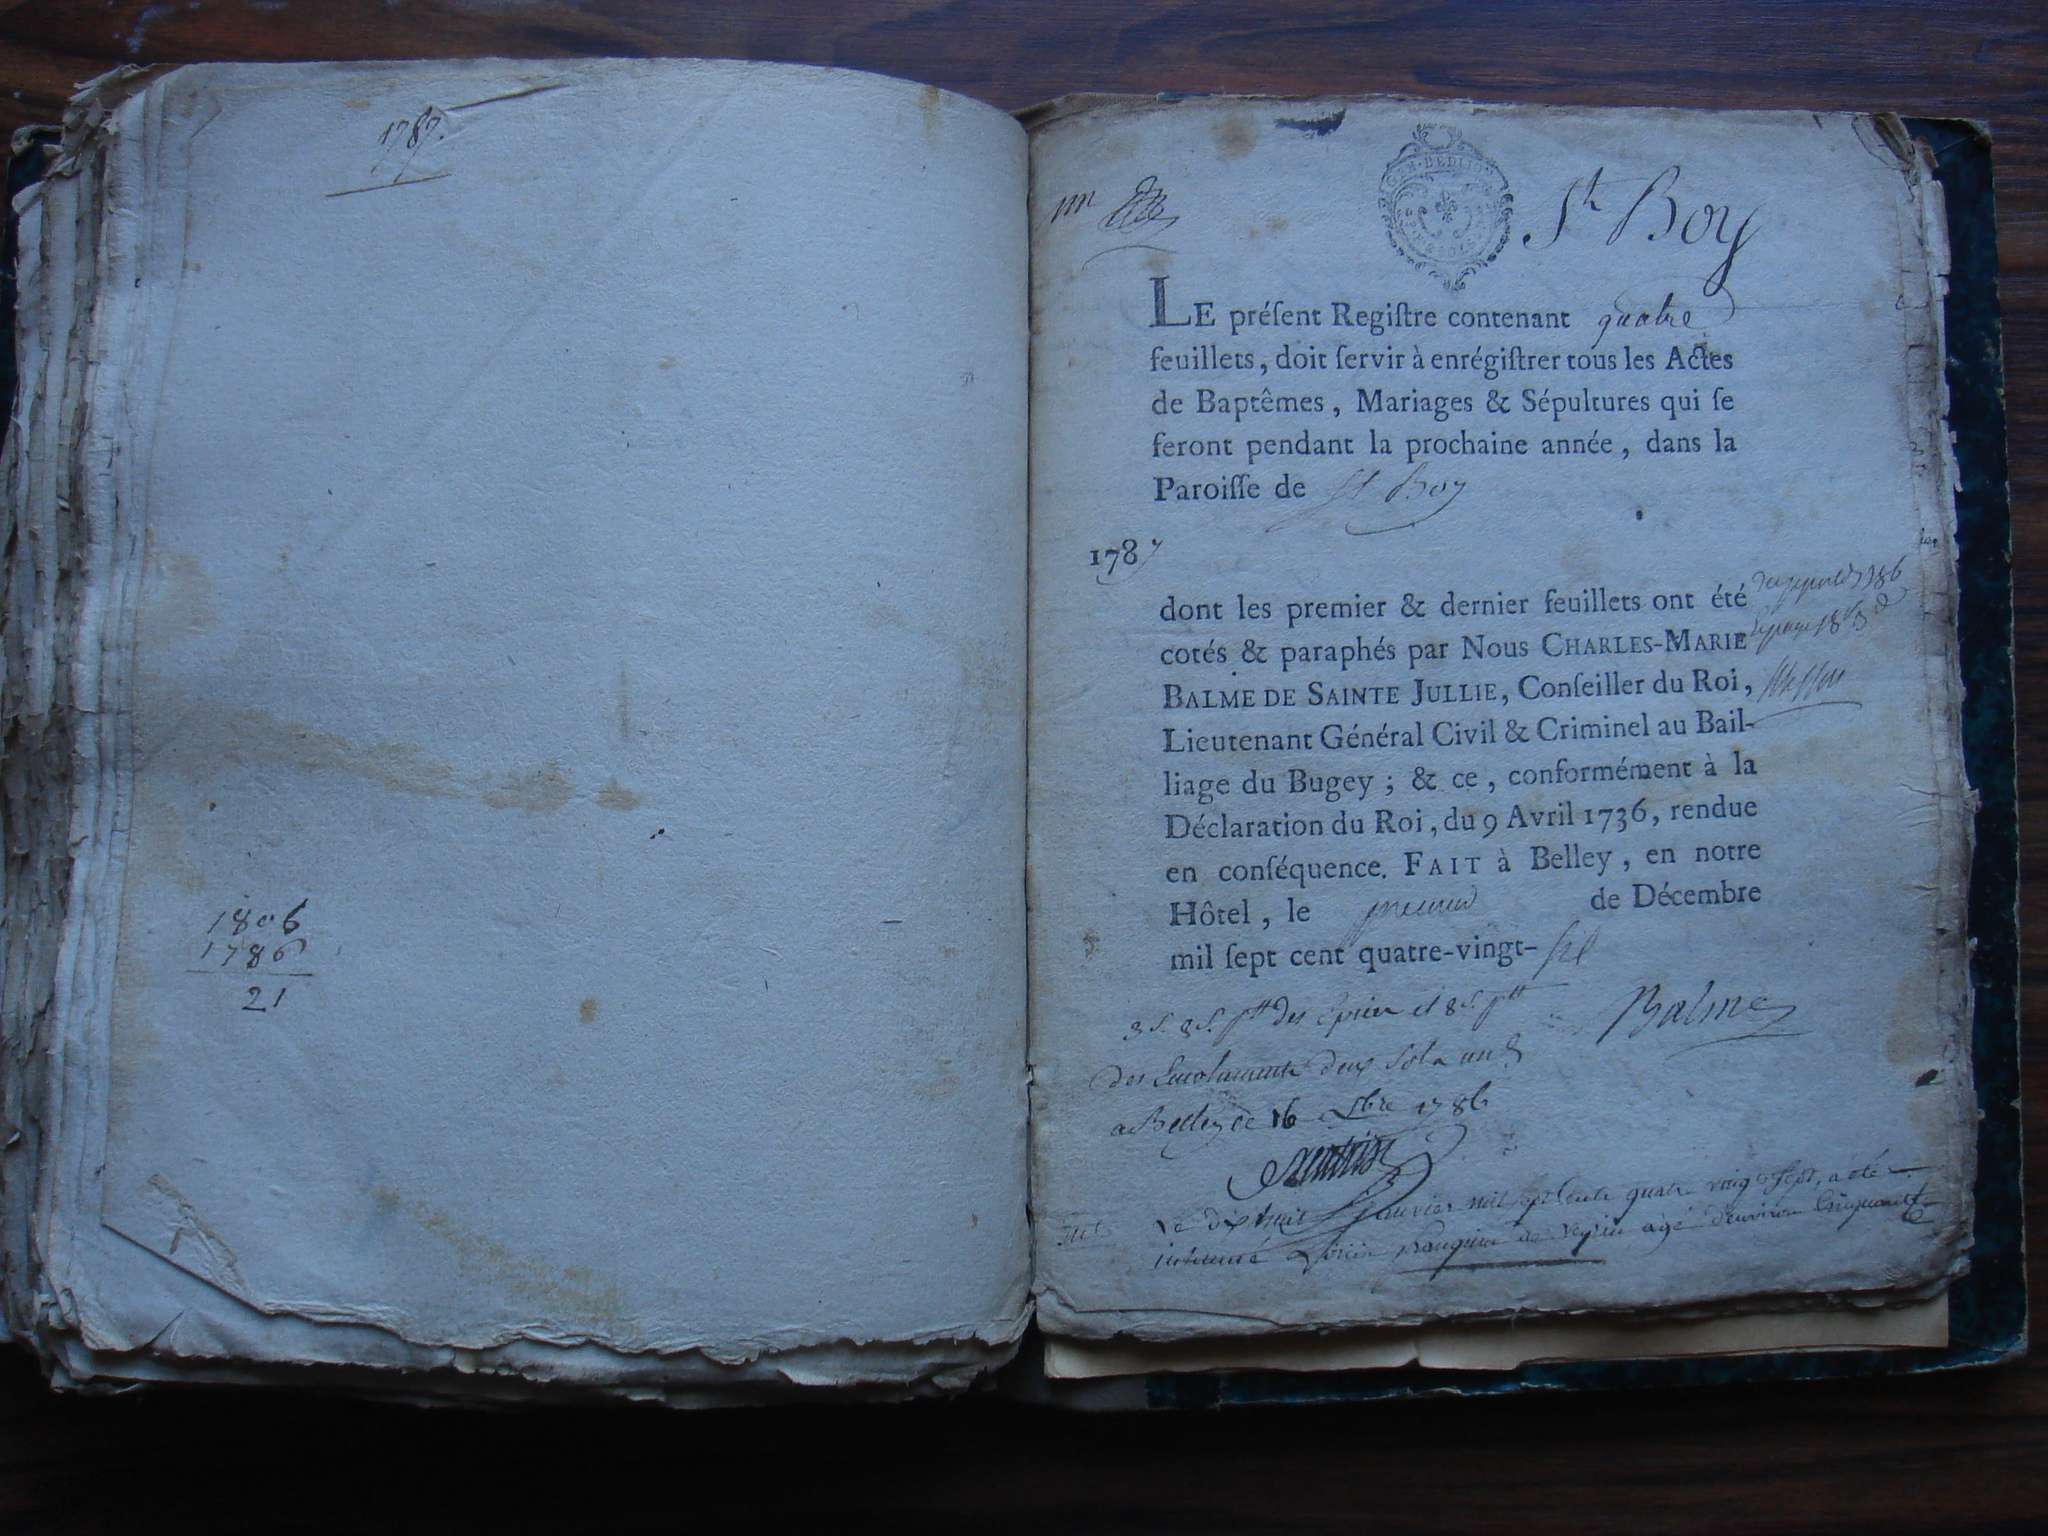 1787.
1806
1786
21
St Boy
LE préſent Regiſtre contenant quatre
feuillets, doit ſervir à enrégiſtrer tous les Actes
de Baptêmes, Mariages & Sépultures qui ſe
feront pendant la prochaine année, dans la
Paroiſſe de St Boy
1787
dont les premier & dernier feuillets ont été
cotés & paraphés par Nous CHARLES-MARIE
BALME DE SAINTE JULLIE, Conſeiller du Roi,
Lieutenant Général Civil & Criminel au Bail-
liage du Bugey; & ce, conformément à la
Déclaration du Roi, du 9 Avril 1736, rendue
en conſéquence. FAIT à Belley, en notre
Hôtel, le premier de Décembre
mil ſept cent quatre-vingt-ſix
Balme
des Emoluments deux sols un
a Belley ce 16 Xbre 1786
Le dix huit Janvier mil sept cent quatre vingt sept, a été
inhumé de Veyrin agé d'environ cinquante